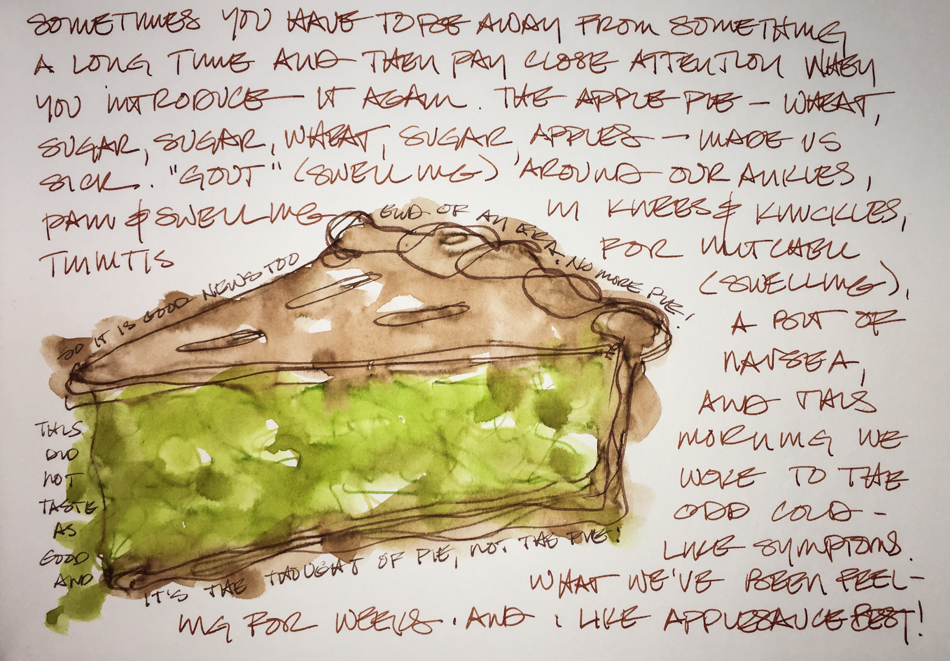 SOMETIMES YOU HAVE TO BE AWAY FROM SOMETHING
A LONG TIME AND THEN PAY CLOSE ATTENTION WHEN
YOU INTRODUCE IT AGAIN. THE APPLE PIE – WHEAT,
SUGAR, SUGAR, WHEAT, SUGAR, APPLES – MADE US
SICK. "GOUT" (SWELLING) AROUND OUR ANKLES,
PAIN & SWELLING IN KNEES & KNUCKLES,
TINNITIS FOR MITCHELL
(SWELLING),
A BOUT OF
NAUSEA,
AND THIS
MORNING WE
WOKE TO THE
ODD COLD-
LIKE SYMPTOMS.
WHAT WE'VE BEEN FEEL-
ING FOR WEEKS. AND I LIKE APPLESAUCE BEST!
THIS
DID
NOT
TASTE
AS
GOOD
AND
SO IT IS GOOD NEWS TOO
END OF AN ERA. NO MORE PIE!
IT'S THE THOUGHT OF PIE, NOT THE PIE!